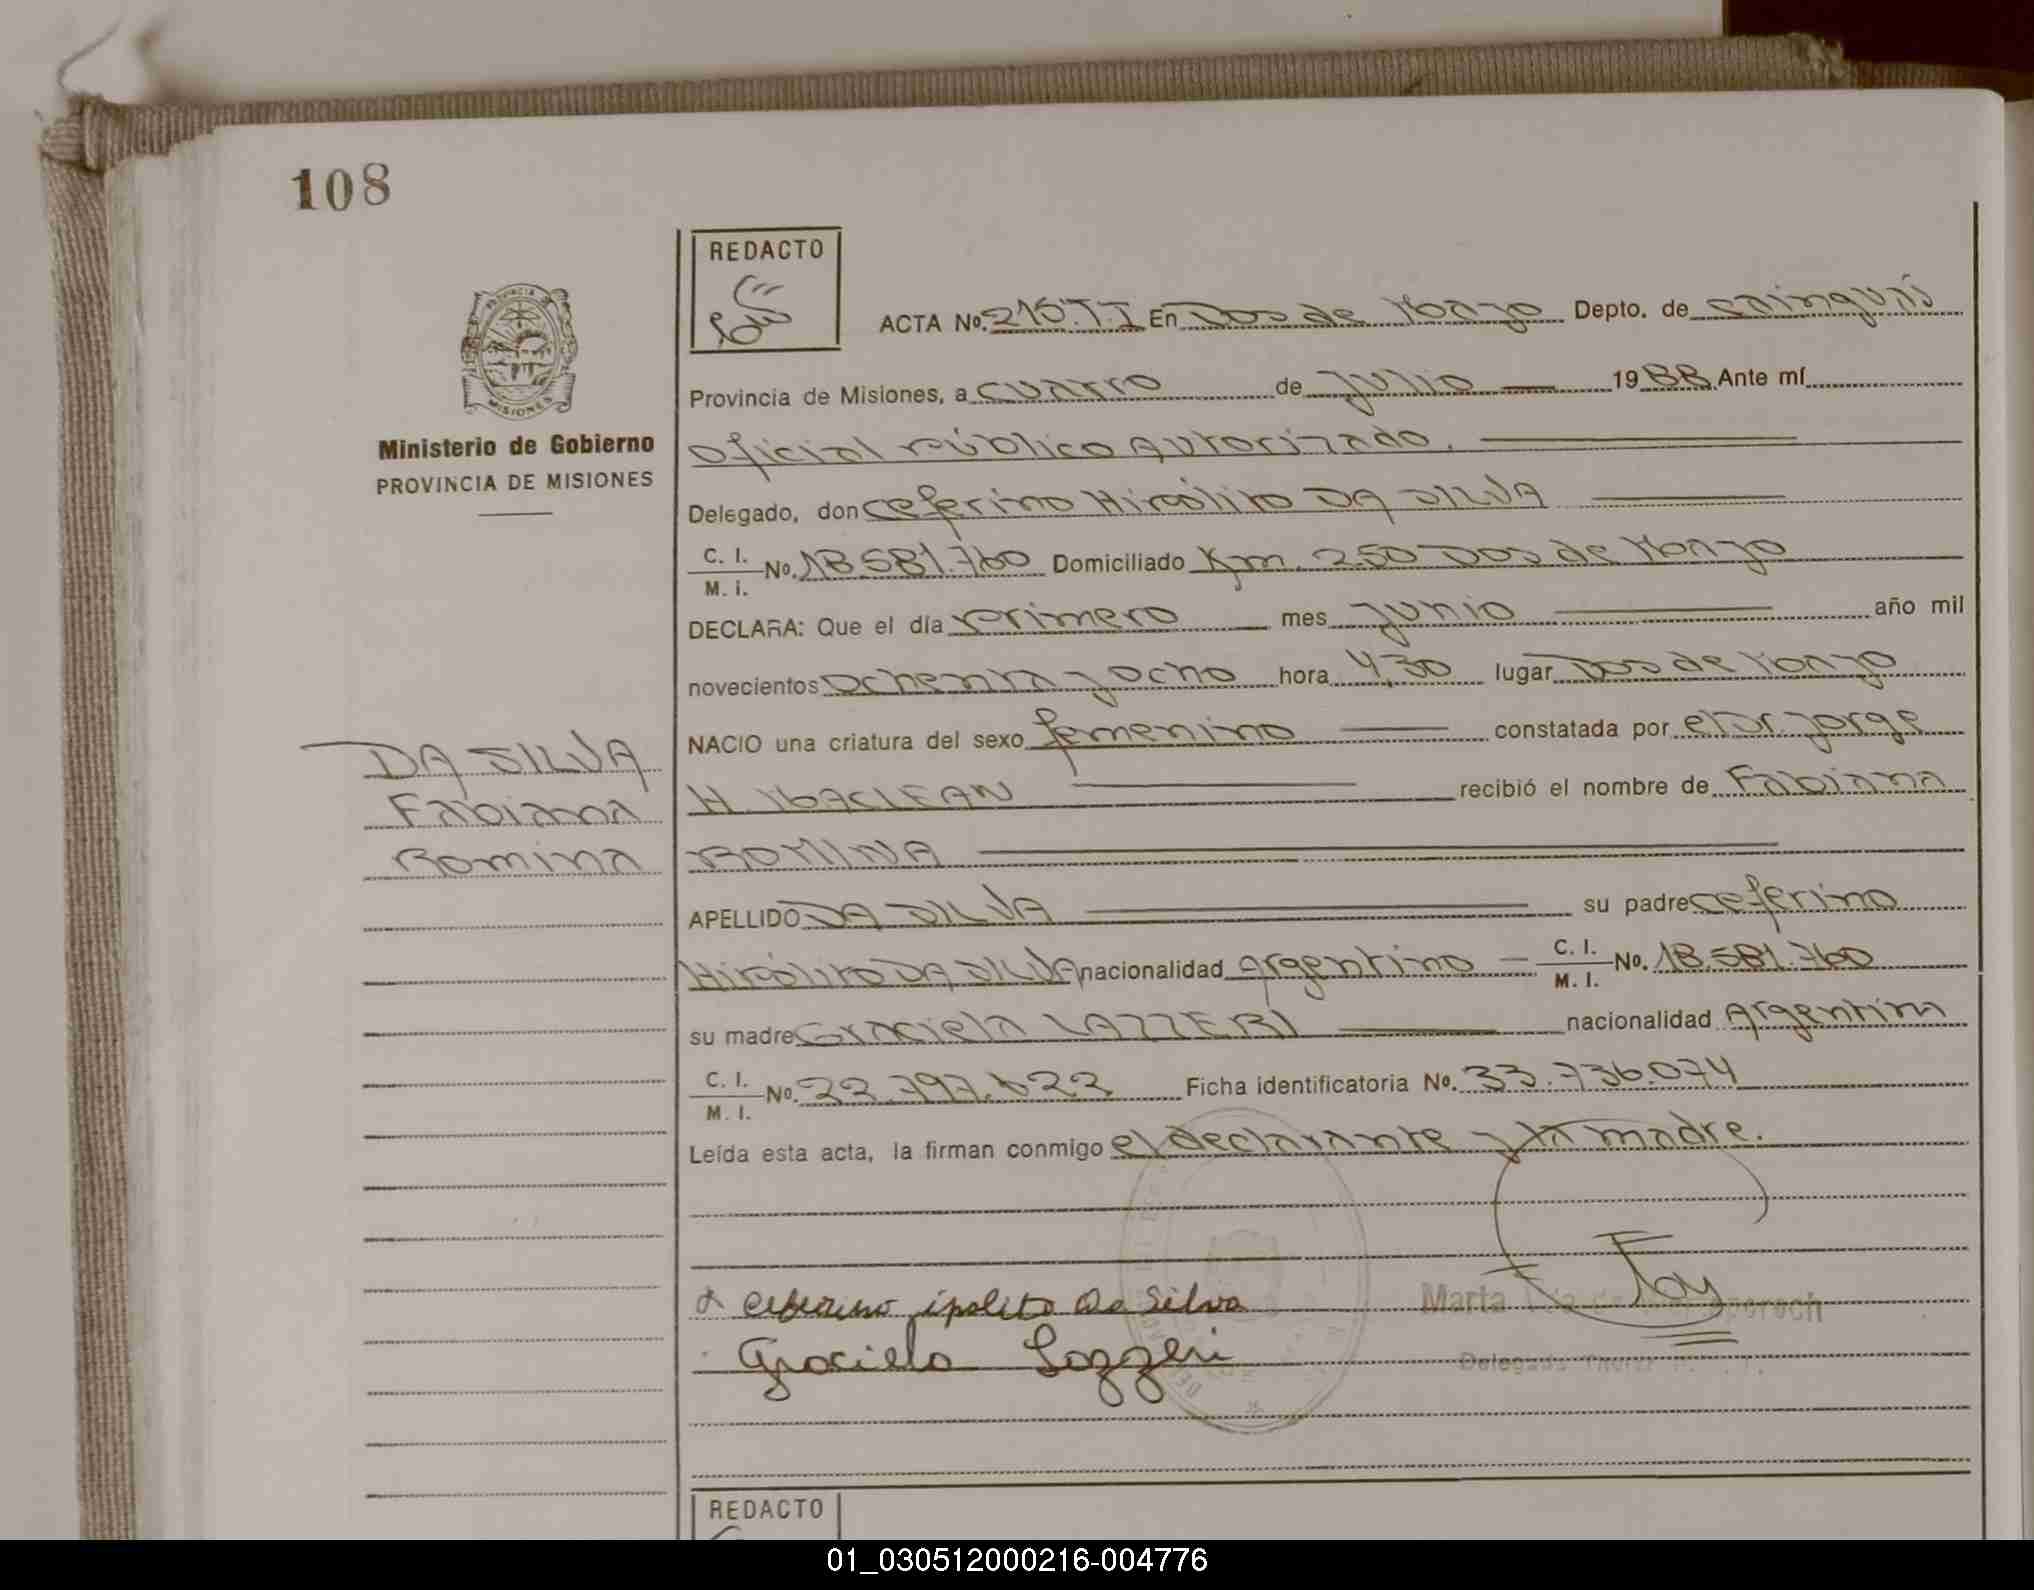 108
REDACTO
ACTA No. 215.T.I En Dos de Mayo Depto. de Cainguás
PROVINCIA DE MISIONES
Provincia de Misiones, a cuatro de Julio 1988 Ante mí
Ministerio de Gobierno
PROVINCIA DE MISIONES
Oficial Público Autorizado.
Delegado, don Ceferino Hipólito DA SILVA
C. I. M. I. No. 18.581.760 Domiciliado Km. 250 Dos de Mayo
DECLARA: Que el día primero mes Junio año mil
novecientos Ochenta y ocho hora 4,30 lugar Dos de Mayo
NACIO una criatura del sexo femenino constatada por el Dr. Jorge
H. MACLEAN recibió el nombre de Fabiana
ROMINA
DA SILVA
Fabiana
Romina
APELLIDO DA SILVA su padre Ceferino
Hipólito DA SILVA nacionalidad Argentino C. I. M. I. No. 18.581.760
su madre Graciela LAZZERI nacionalidad Argentina
C. I. M. I. No. 22.797.622 Ficha identificatoria No. 33.736.074
Leída esta acta, la firman conmigo el declarante y la madre.
ceferino ipolito Da Silva
Marta
Graciela Lazzeri
Delegada
REDACTO
01_030512000216-004776